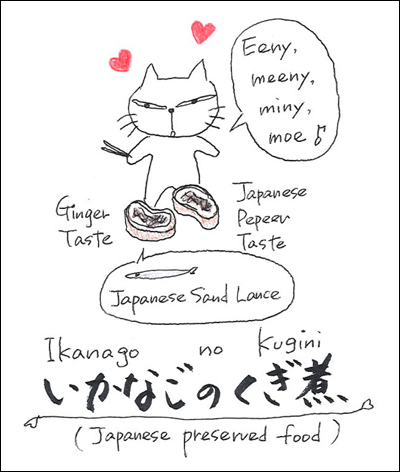 Eeny,
meeny,
miny,
moe♪
Ginger
Taste
Japanese
Pepeer
Taste
Japanese Sand Lance
Ikanago no Kugini
いかなごのくぎ煮
(Japanese preserved food)